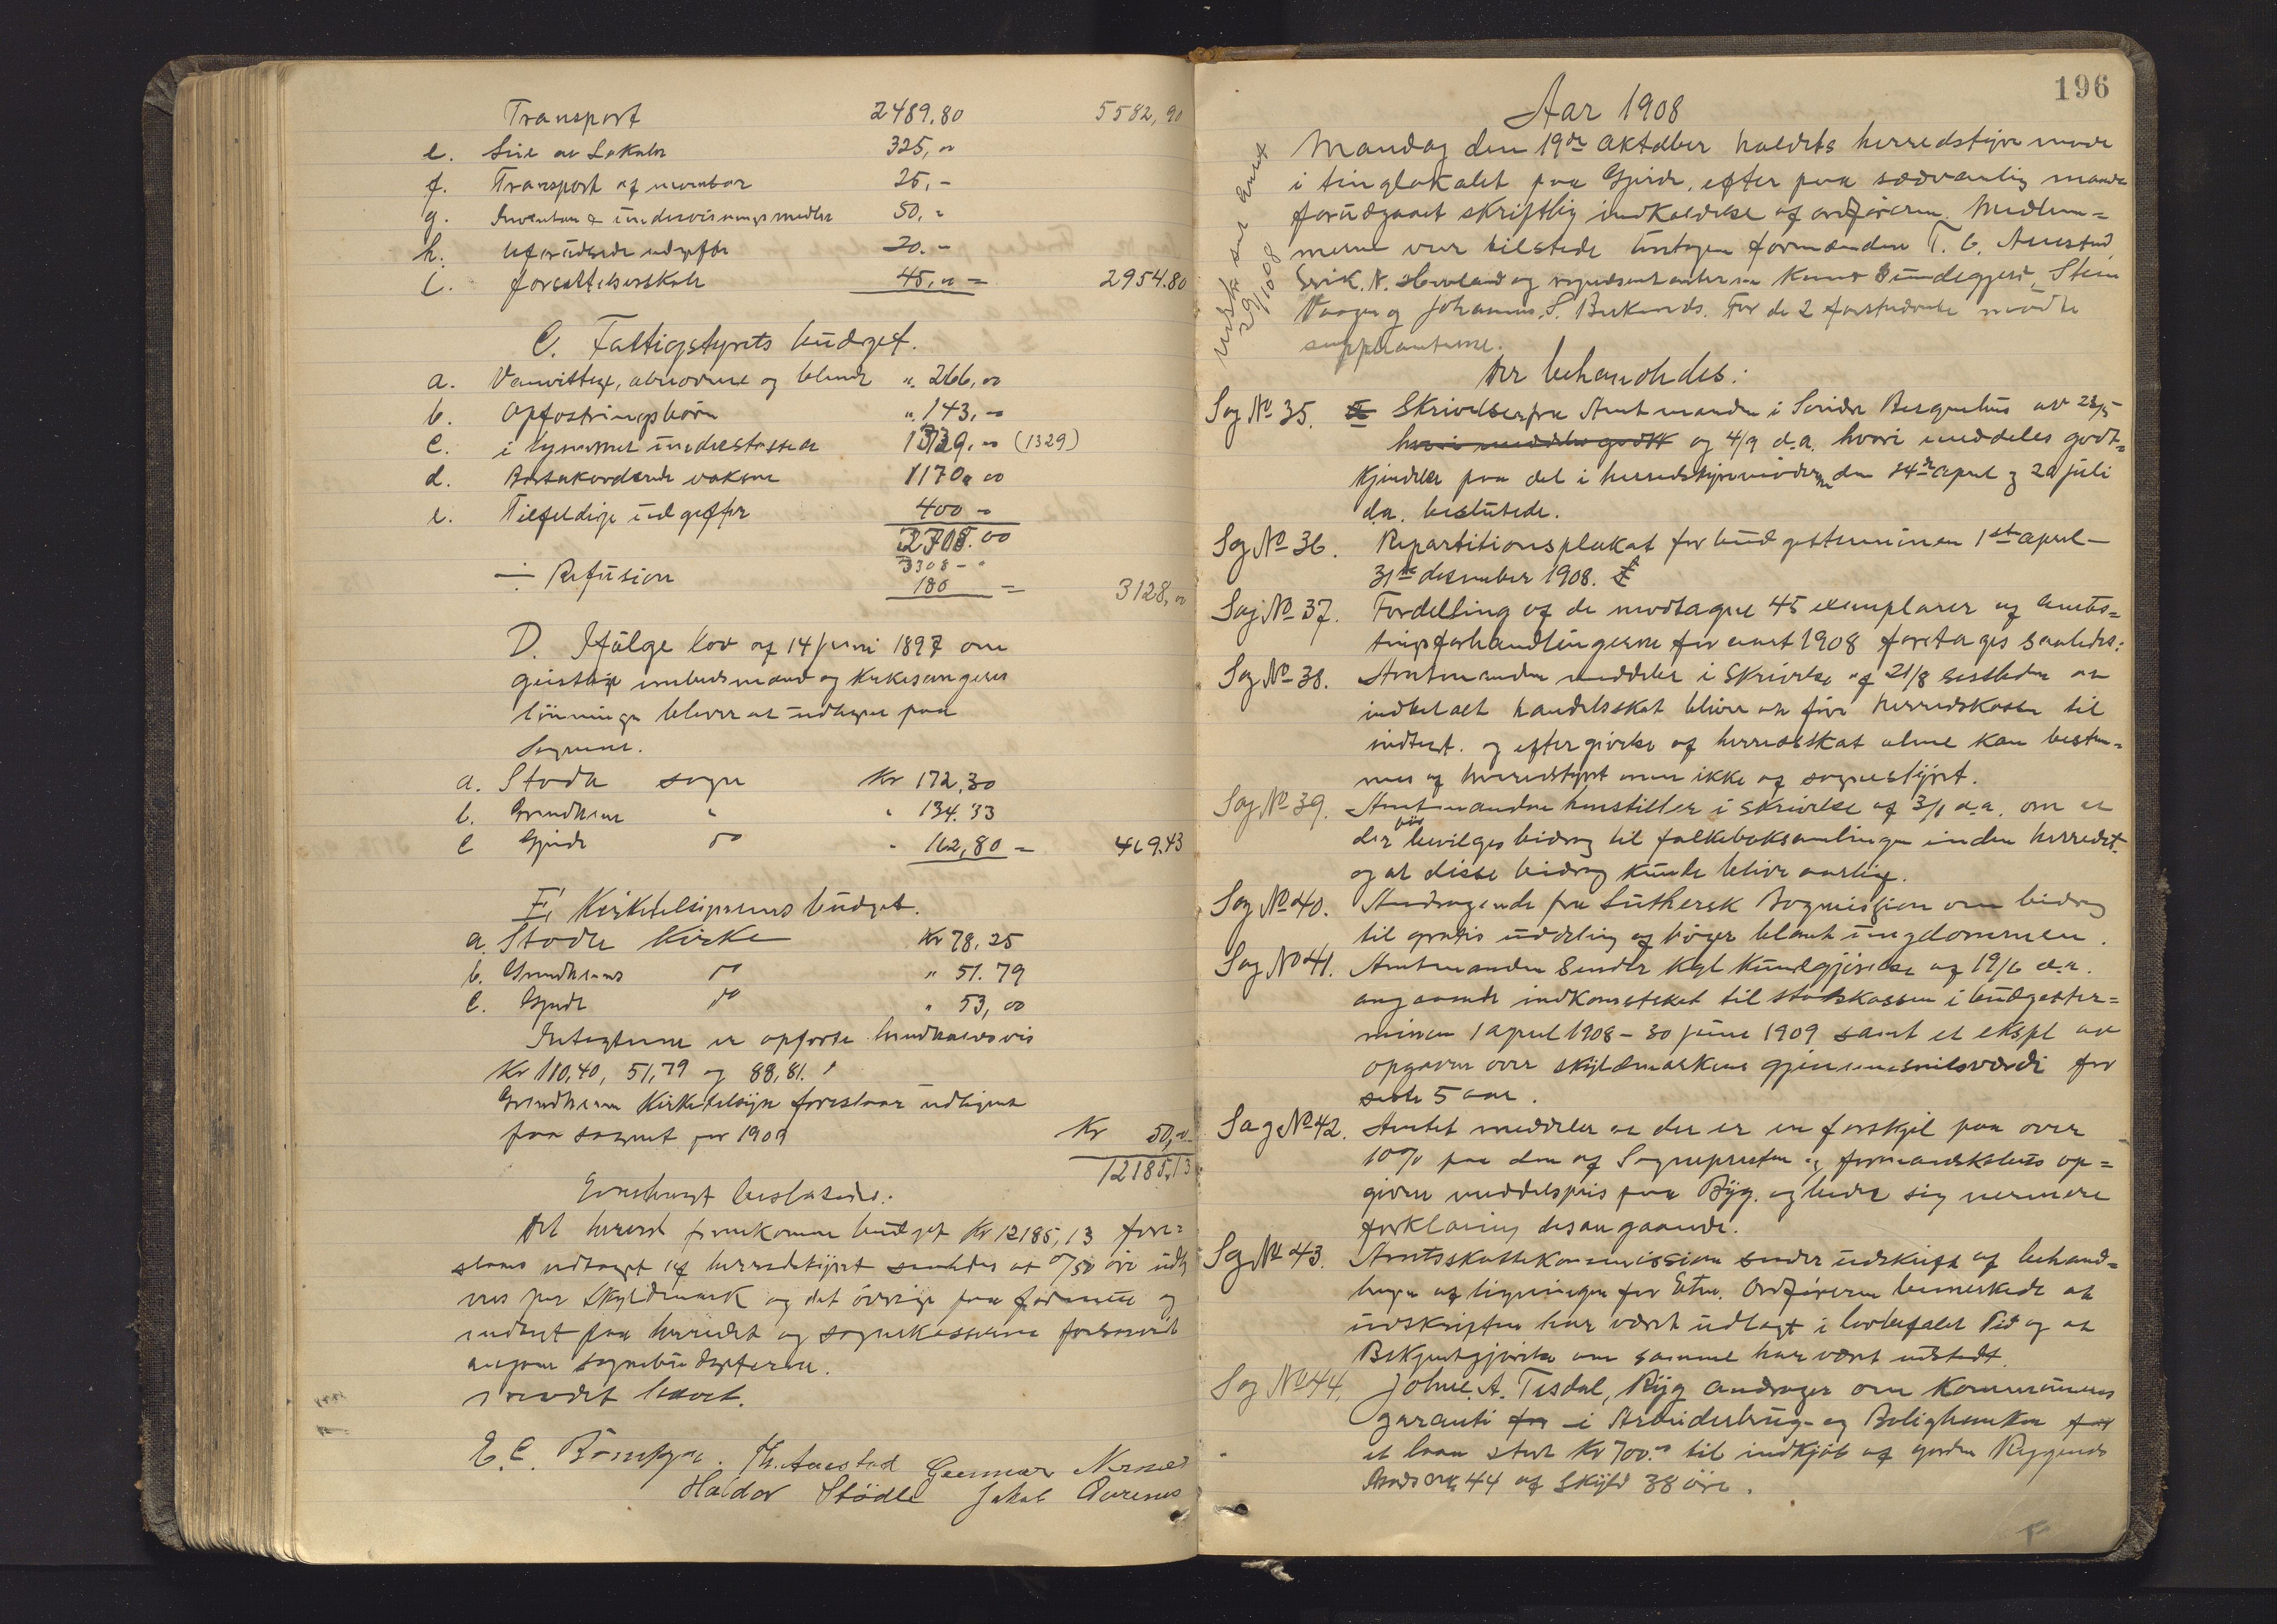 Transport 2489,80 5582,90
e. Leie av Lokaler 325,00
f. Transport af memb 25,-
g. Inventar & undervisningsmedler 50,-
h. uforudseede udgifter 20.-
i. forsættelsesskole 45,00 = 2954.80
C. Fattigstyrets budget.
a. Vanvittige, abnorme og blinde ". 266,00
b. Opfostringsbörn ". 143,-
c. i hjemmet understøttede 1329,00 (1329)
d. Bortakorderede voksne 1170,00
e. Tilfeldige udgifter 400 -
2708.00
3308 - "
÷ Refusion 180 = 3128,00
D. Ifølge Lov af 14 Juni 1897 om
geistlige embedsmænd og Kirkesangeres
lönninger bliver at udligne paa
Sognene.
a. Stødle sogn Kr 172,30
b. Grindheim " " 134.33
c Gjerde do " 162,80 = 469.43
E, Kirketilsynenes budget.
a. Stödle Kirke Kr 78,25
b. Grindheims do " 51.79
c. Gjerde do " 53,00
Indtægterne er opførte henholdsvis
Kr 110,40, 51,79 og 88,81.
Grindheim Kirketilsyn foreslaar udlignet
paa sognet for 1909 Kr 50,00
12185,13
Enstemmigt besluttedes:
Det herved fremkomne budget Kr 12185,13 fore=
slaaes vedtaget af herredstyret saaledes at 0/50 öre udlig
nes per Skyldmark og det övrige paa formue og
indtægt paa herredet og sognekasserne forsaavidt
angaar sognebudgetterne.
Mødet hævet.
E. C. Th. Aarestad Gunnar
Haldor Stödle Jakob
196
Aar 1908
Mandag den 19de Oktober holdtes herredstyre møde
i tinglokalet paa Gjerde, efter paa sædvanlig maade
forudgaaet skriftlig indkaldelse af ordføreren. Medlem=
merne var tilstede untagen formænden T. C. Aarestad
Erik. N. Hovland og repræsentanterne Knut Stein
Vaage og Johannes. S. For de 2 forstnævnte mødte
suppleanterne.
Udsk
29/10 08
Der behandledes:
Sag No 35. Skrivelser fra Amtmanden i Søndre Bergenhus av 23/5
hvori meddeles godk og 4/9 d.a. hvori meddeles godt=
kjendelse paa det i herredstyremøderne den 14de april og 20 juli
d.a. besluttede.
Sag No 36. Repartitionsplakat for budgetterminen 1ste april -
31te desember 1908.
Sag No 37. Fordelling af de modtagne 45 exemplarer af amts=
tingsforhandlingerne for aaret 1908 foretages saaledes:
Sag No 38. Amtmanden meddeler i Skrivelse af 21/8 sistleden at
indbetalt handelsskat bliver at føre herredskassen til
indtægt. og eftergivelse af herredsskat alene kan bestem=
mes af herredstyret men ikke af sognestyret.
Sag No 39. Amtmanden henstiller i skrivelse af 3/6 d.a. om at
der bør bevilges bidrag til folkeboksamlinger inden herredet.
og at disse bidrag kunde blive aarlige.
Sag No 40. Andragende fra Luthersk Bogmission om bidrag
til gratis uddeling af bøger blant ungdommen.
Sag No 41. Amtmanden sender Kgl Kundgjørelse af 19/6 d.a.
angaaende indkomstskat til statskassen i budgetter=
minen 1 april 1908 - 30 june 1909 samt et ekspl av
opgaven over skyldmarkens gjennemsnitsværdi for
siste 5 aar.
Sag No 42. Amtet meddeler at der er en forskjel paa over
10% paa den af Sognepræsten og formandskabets op=
givne middelspris paa Byg. og beder sig nærmere
forklaring desangaaende.
Sag No 43. Amtsskattekommission sender udskrift af behand=
lingen af ligningen for Etne. Ordføreren bemerkede at
udskriften har været udlagt i lovbefalet Tid og at
Bekjentgjørelse om samme har vært udstedt.
Sag No 44. Johne. A. Tesdal, Ryg andrager om Kommunens
garanti for i Arbeiderbrug- og Boligbanken for
et laan stort Kr 700.00 til indkjøb af garden
Gards No 44 af Skyld 38 öre.